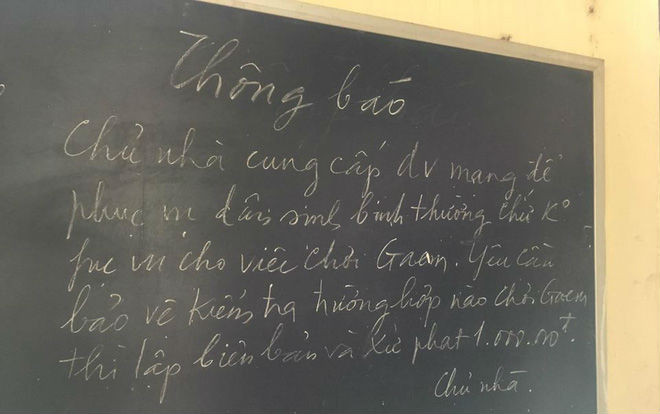 Thông báo
Chủ nhà cung cấp dv mạng để
phục vụ dân sinh bình thường chứ Kº
fục vụ cho việc chơi Gaem. Yêu cầu
bảo vệ kiểm tra trường hợp nào chơi Gaem
thì lập biên bản và xử phạt 1.000.000đ.
Chủ nhà.